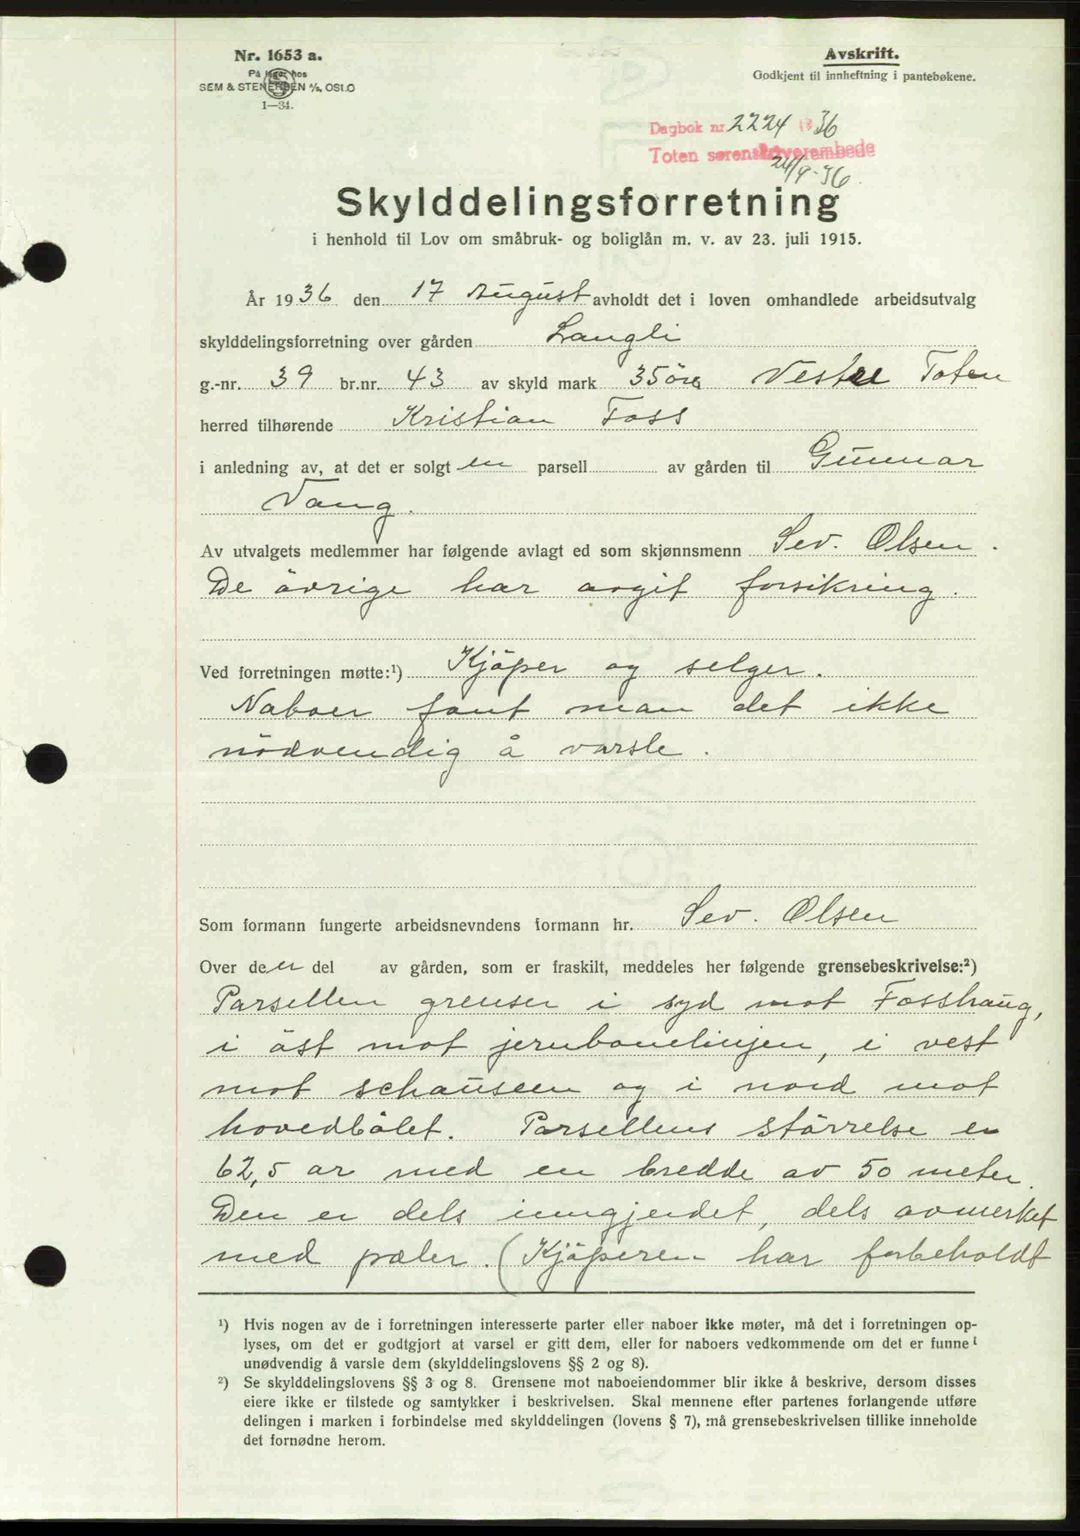 Nr. 1653 a.
På lager hos
SEM & STENERSEN A/S, OSLO
1—34.
Avskrift.
Godkjent til innheftning i pantebøkene.
Dagbok nr. 2224 1936
Toten sorenskriverembede
24/9-36.
Skylddelingsforretning
i henhold til Lov om småbruk- og boliglån m. v. av 23. juli 1915.
År 1936 den 17 August avholdt det i loven omhandlede arbeidsutvalg
skylddelingsforretning over gården Langli
g.-nr. 39 br.nr. 43 av skyld mark 35 öre Vestre Toten
herred tilhørende Kristian Foss
i anledning av, at det er solgt en parsell av gården til Gunnar
Vang.
Av utvalgets medlemmer har følgende avlagt ed som skjønnsmenn Sev. Olsen.
De övrige har avgit forsikring.
Ved forretningen møtte:¹) Kjöper og selger.
Naboer fant man det ikke
nödvendig å varsle.
Som formann fungerte arbeidsnevndens formann hr. Sev. Olsen
Over den del av gården, som er fraskilt, meddeles her følgende grensebeskrivelse:²)
Parsellen grenser i syd mot Fosshaug,
i öst mot jernbanelinjen, i vest
mot schauseen og i nord mot
hovedbölet. Parsellens störrelse er
62,5 ar med en bredde av 50 meter.
Den er dels inngjerdet, dels avmerket
med pæler. (Kjöperen har forbeholdt
¹) Hvis nogen av de i forretningen interesserte parter eller naboer ikke møter, må det i forretningen op-
lyses, om det er godtgjort at varsel er gitt dem, eller for naboers vedkommende om det er funnet
unødvendig å varsle dem (skylddelingslovens §§ 2 og 8).
²) Se skylddelingslovens §§ 3 og 8. Grensene mot naboeiendommer blir ikke å beskrive, dersom disses
eiere ikke er tilstede og samtykker i beskrivelsen. Skal mennene efter partenes forlangende utføre
delingen i marken i forbindelse med skylddelingen (lovens § 7), må grensebeskrivelsen tillike inneholde
det fornødne herom.